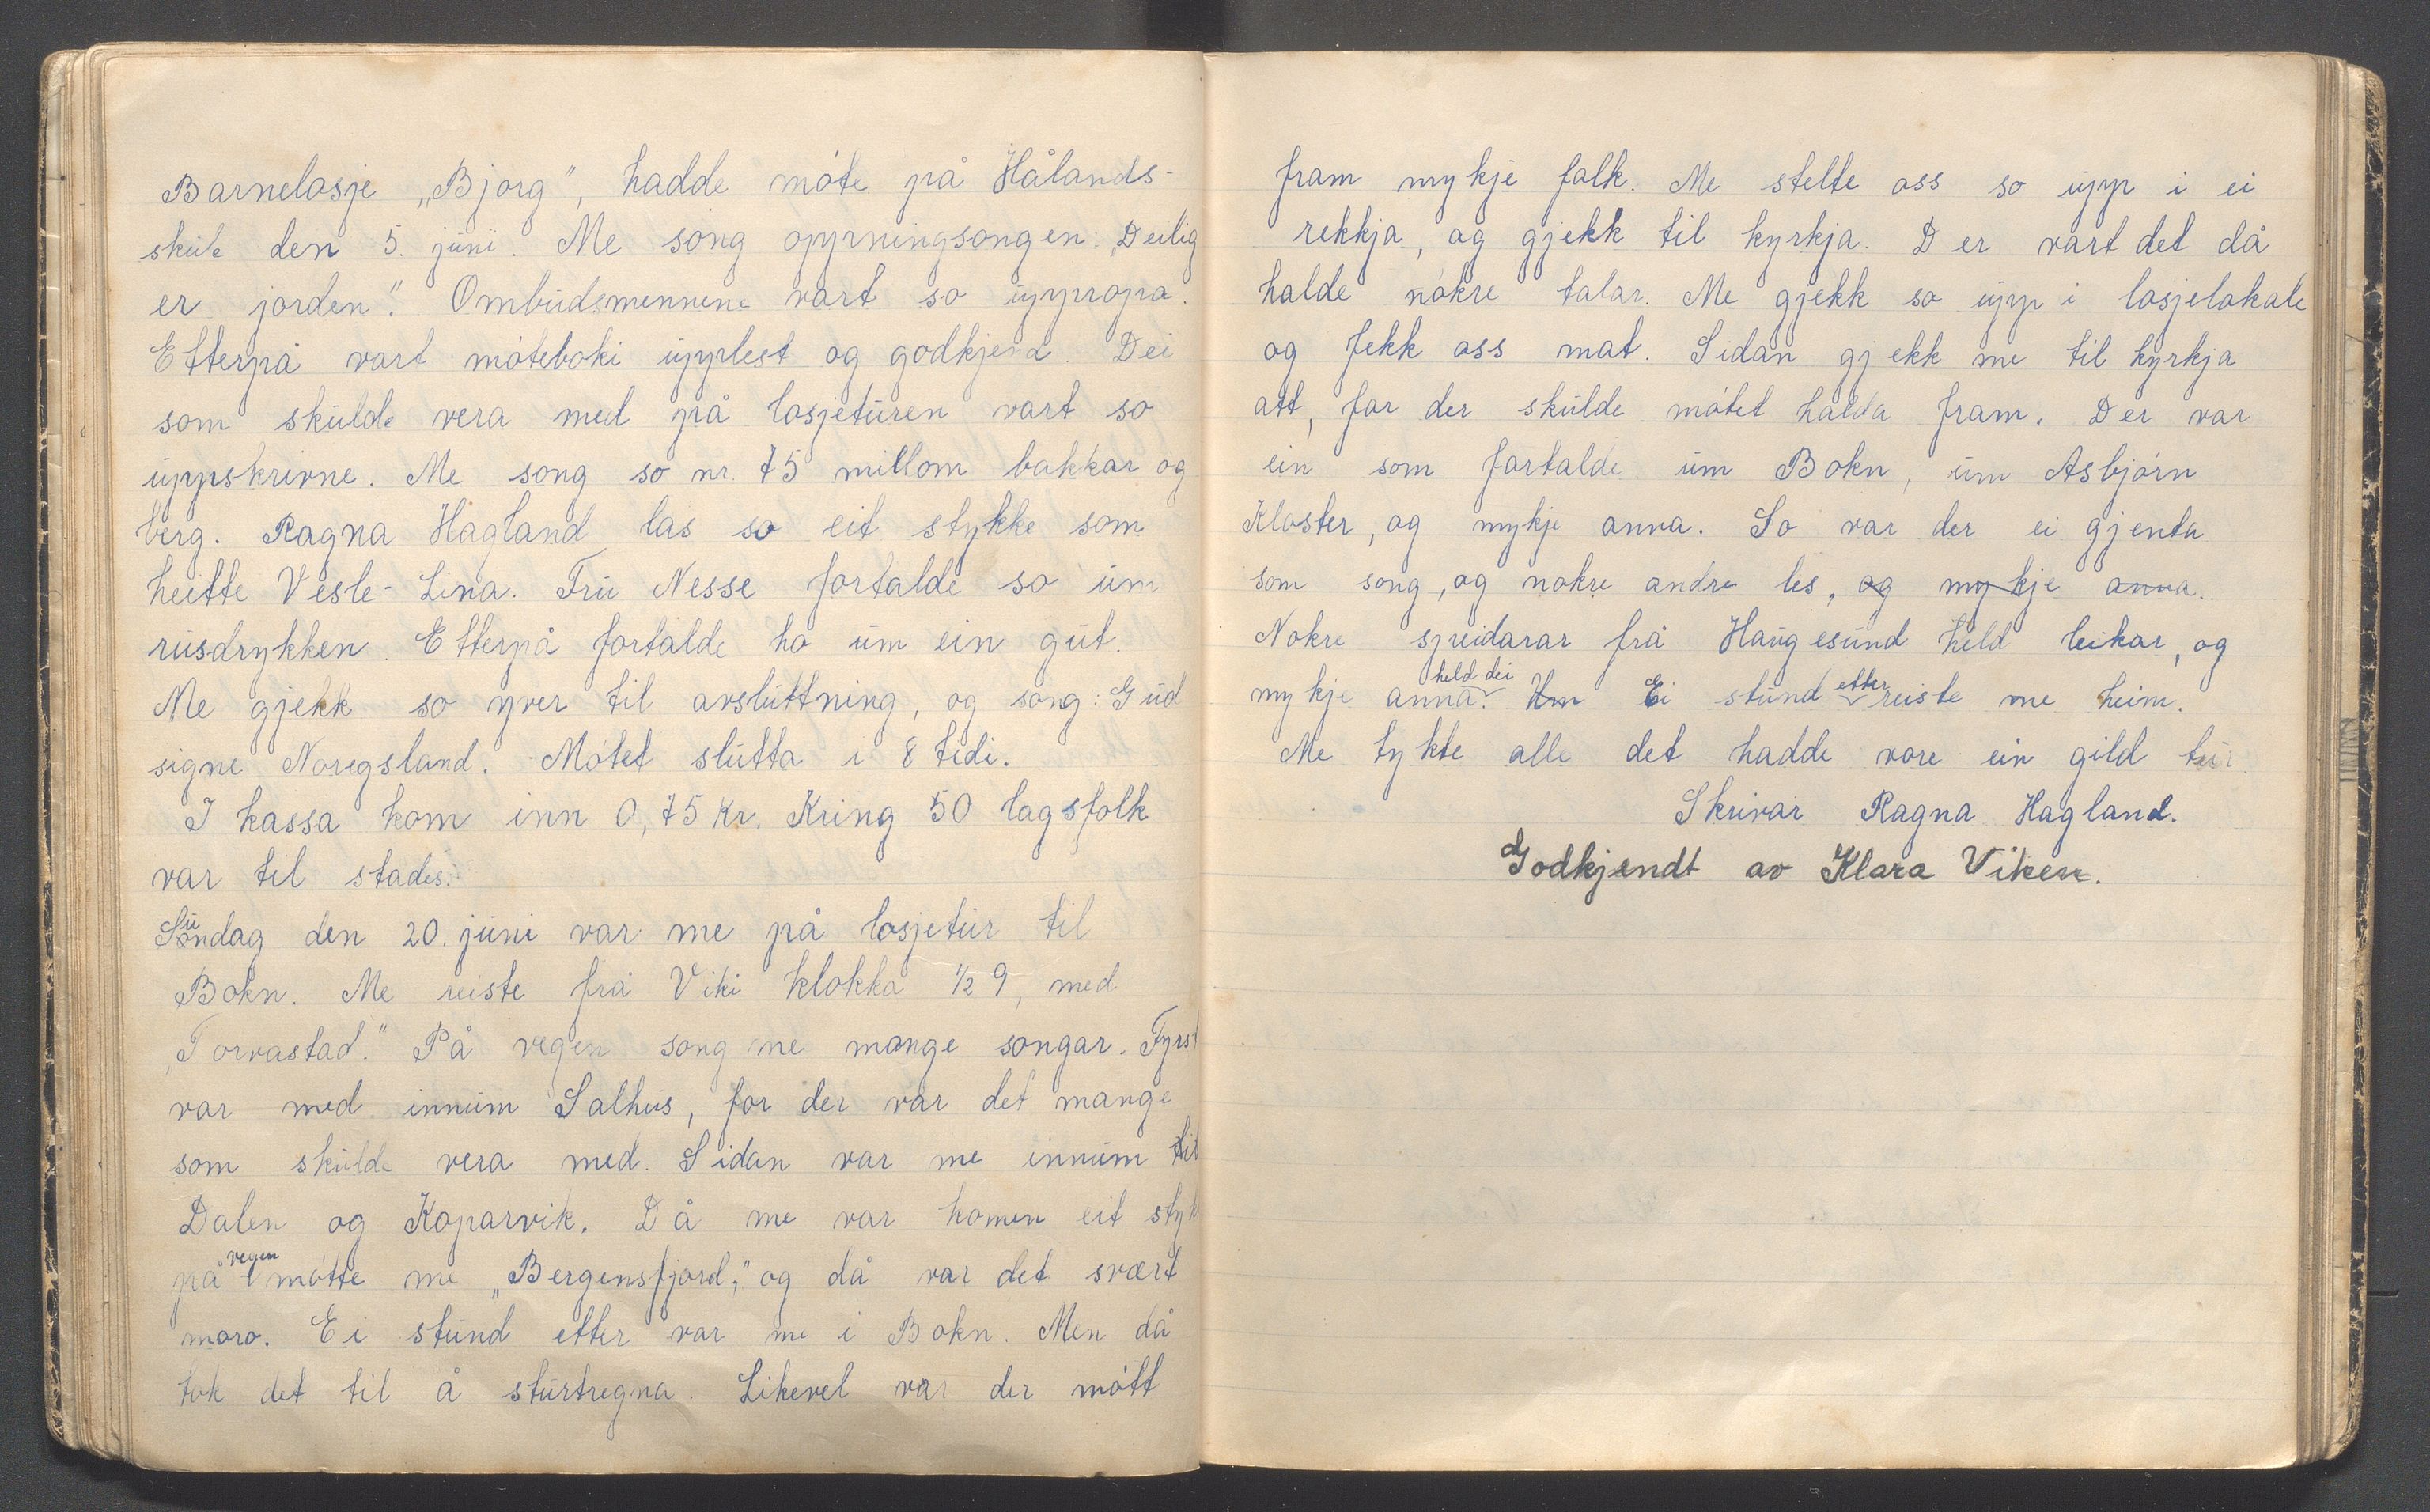 Barnelosje „Bjørg", hadde møte på Hålands-
skule den 5. juni. Me song opprningsongen: „Deilig
er jorden". Ombudsmennene vart so uppropa.
Etterpå vart møteboki upplest og godkjend. Dei
som skulde vera med på losjeturen vart so
uppskrivne. Me song so nr. 75 millom bakkar og
berg. Ragna Hagland las so eit stykke som
heitte Vesle-Lina. Fru Nesse fortalde so um
rusdrykken. Etterpå fortalde ho um ein gut.
Me gjekk so yver til avsluttning, og song: Gud
signe Noregsland. Møtet slutta i 8 tidi.
I kassa kom inn 0,75 kr. Kring 50 lagsfolk
var til stades.
Sundag den 20. juni var me på losjetur til
Bokn. Me reiste frå Viki klokka ½ 9, med
„Torvastad." På vegen song me mange songar. Fyrst
var med innum Salhus, for der var det mange
som skulde vera med. Sidan var me innum til
Dalen og Koparvik. Då me var komen eit styk
på vegen møtte me „Bergensfjord," og då var det svært
moro. Ei stund etter var me i Bokn. Men då
tok det til å sturtregna. Likevel var der møtt
fram mykje folk. Me stelte oss so upp i ei
rekkja, og gjekk til kyrkja. Der vart det då
halde nokre talar. Me gjekk so upp i losjelokale
og fekk oss mat. Sidan gjekk me til kyrkja
att, for der skulde møtet halda fram. Der var
ein som fortalde um Bokn, um Asbjørn
Kloster, og mykje anna. So var der ei gjenta
som song, og nokre andre les, og mykje anna.
Nokre speidarar frå Haugesund held leikar, og
mykje anna held dei. Um Ei stund etter reiste me heim.
Me tykte alle det hadde vore ein gild tur.
Skrivar Ragna Hagland.
Godkjendt av Klara Viken.